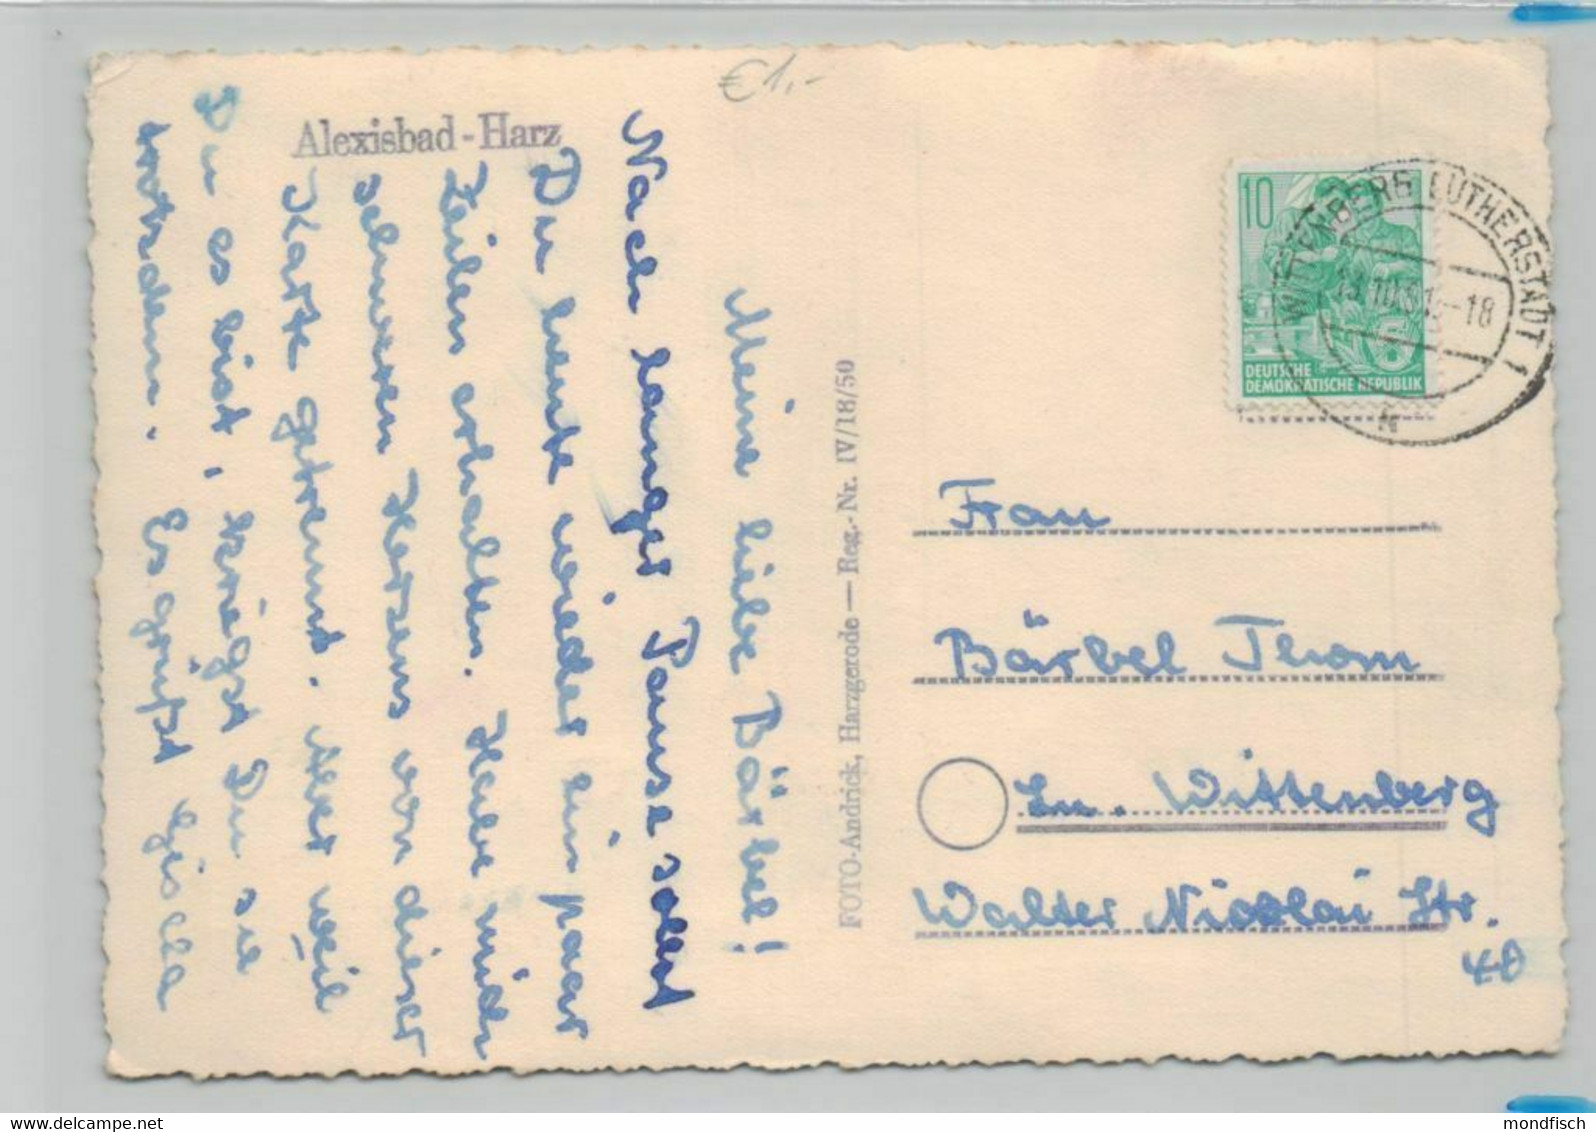 €1,-
Alexisbad-Harz
Meine liebe Bärbel!
Nach langer Pause sollst
Du heute wieder ein paar
Zeilen erhalten. Habe mich
schweren Herzens von dieser
Karte getrennt. Aber weil
Du es bist, kriegst Du sie
trotzdem. Es grüßt Gisela
FOTO-Andrick, Harzgerode — Reg.-Nr. IV/18/50
10
DEUTSCHE
DEMOKRATISCHE REPUBLIK
WITTENBERG LUTHERSTADT 1
-18
Frau
Bärbel Thom
Lu. Wittenberg
Walter Nicolai Str.
40
mondfisch